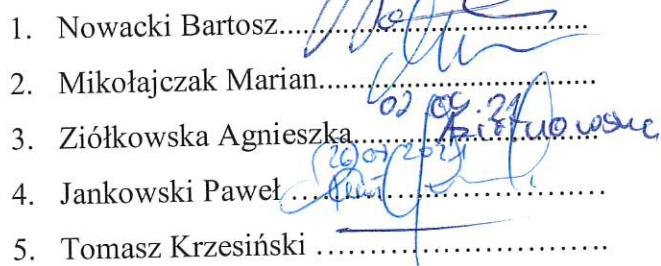 1. Nowacki Bartosz..............................
2. Mikołajczak Marian..............................
3. Ziółkowska Agnieszka..............................
4. Jankowski Paweł ..............................
5. Tomasz Krzesiński ..............................